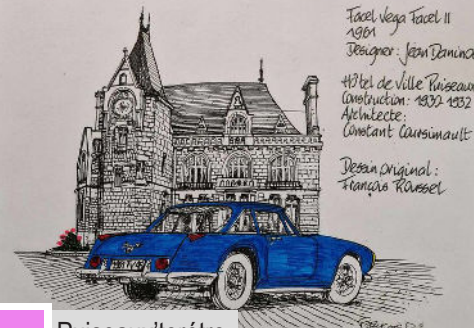 Facel Vega Facel II
1961
Designer: Jean Daninos
Hôtel de Ville Puiseaux
Construction: 1932
Architecte:
Constant Coursimault
Dessin original:
François Roussel